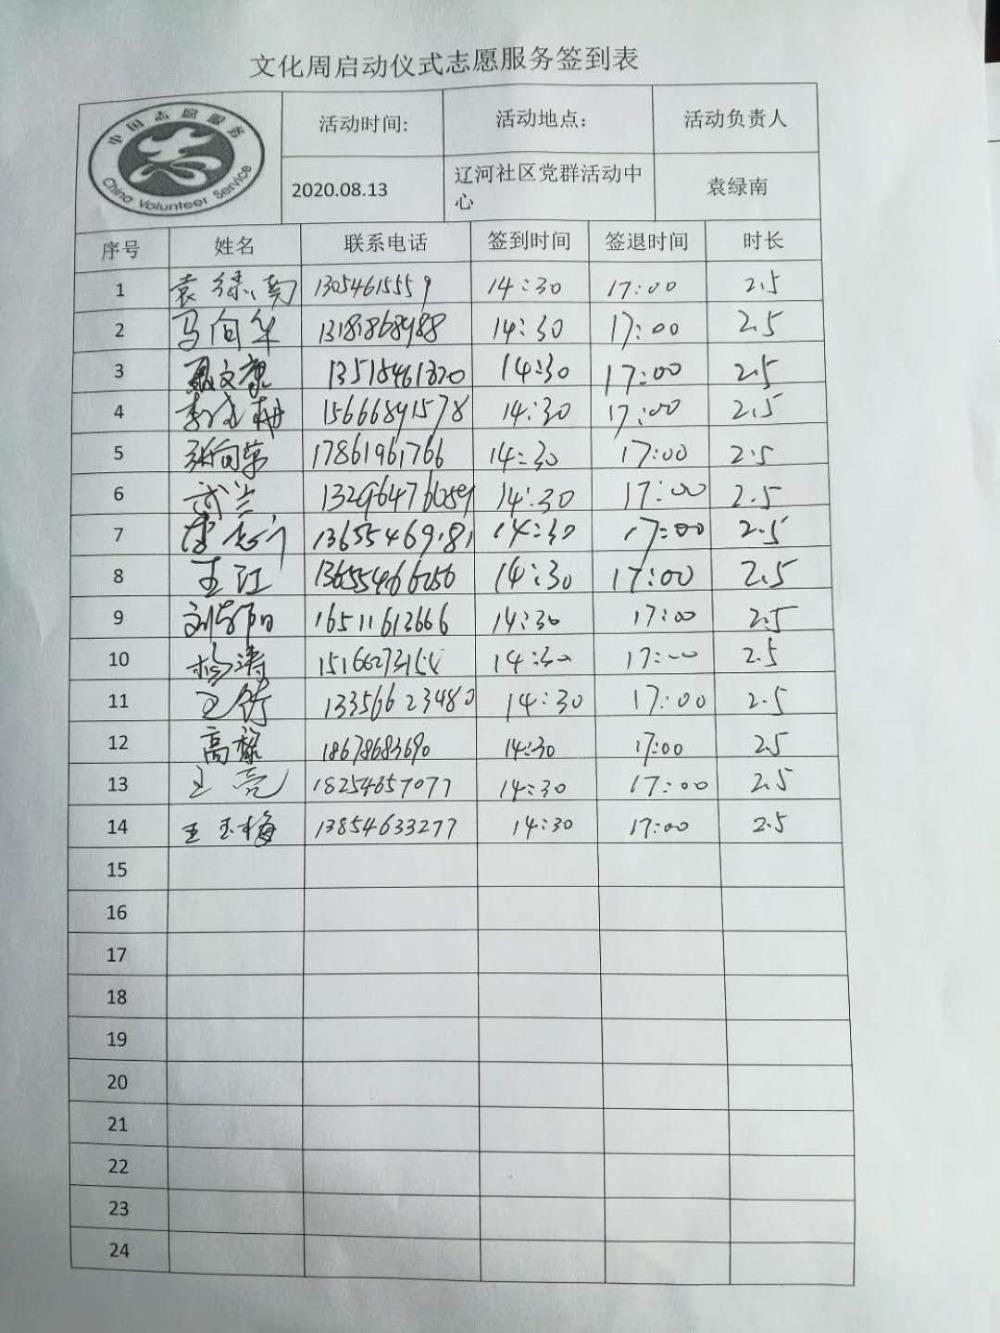 文化周启动仪式志愿服务签到表
中国志愿服务
China Volunteer Service
活动时间: 活动地点: 活动负责人
2020.08.13 辽河社区党群活动中心 袁绿南
序号 姓名 联系电话 签到时间 签退时间 时长
1 袁绿南 13054615559 14:30 17:00 2.5
2 马向华 13181868988 14:30 17:00 2.5
3 14:30 17:00 2.5
4 15666891578 14:30 17:00 2.5
5 张向荣 17861961766 14:30 17:00 2.5
6 武兰 14:30 17:00 2.5
7 13655469181 14:30 17:00 2.5
8 王江 13655466056 14:30 17:00 2.5
9 16511613666 14:30 17:00 2.5
10 杨涛 14:30 17:00 2.5
11 13356623480 14:30 17:00 2.5
12 高禄 18678683690 14:30 17:00 2.5
13 王亮 18254657077 14:30 17:00 2.5
14 王玉梅 13854633277 14:30 17:00 2.5
15
16
17
18
19
20
21
22
23
24